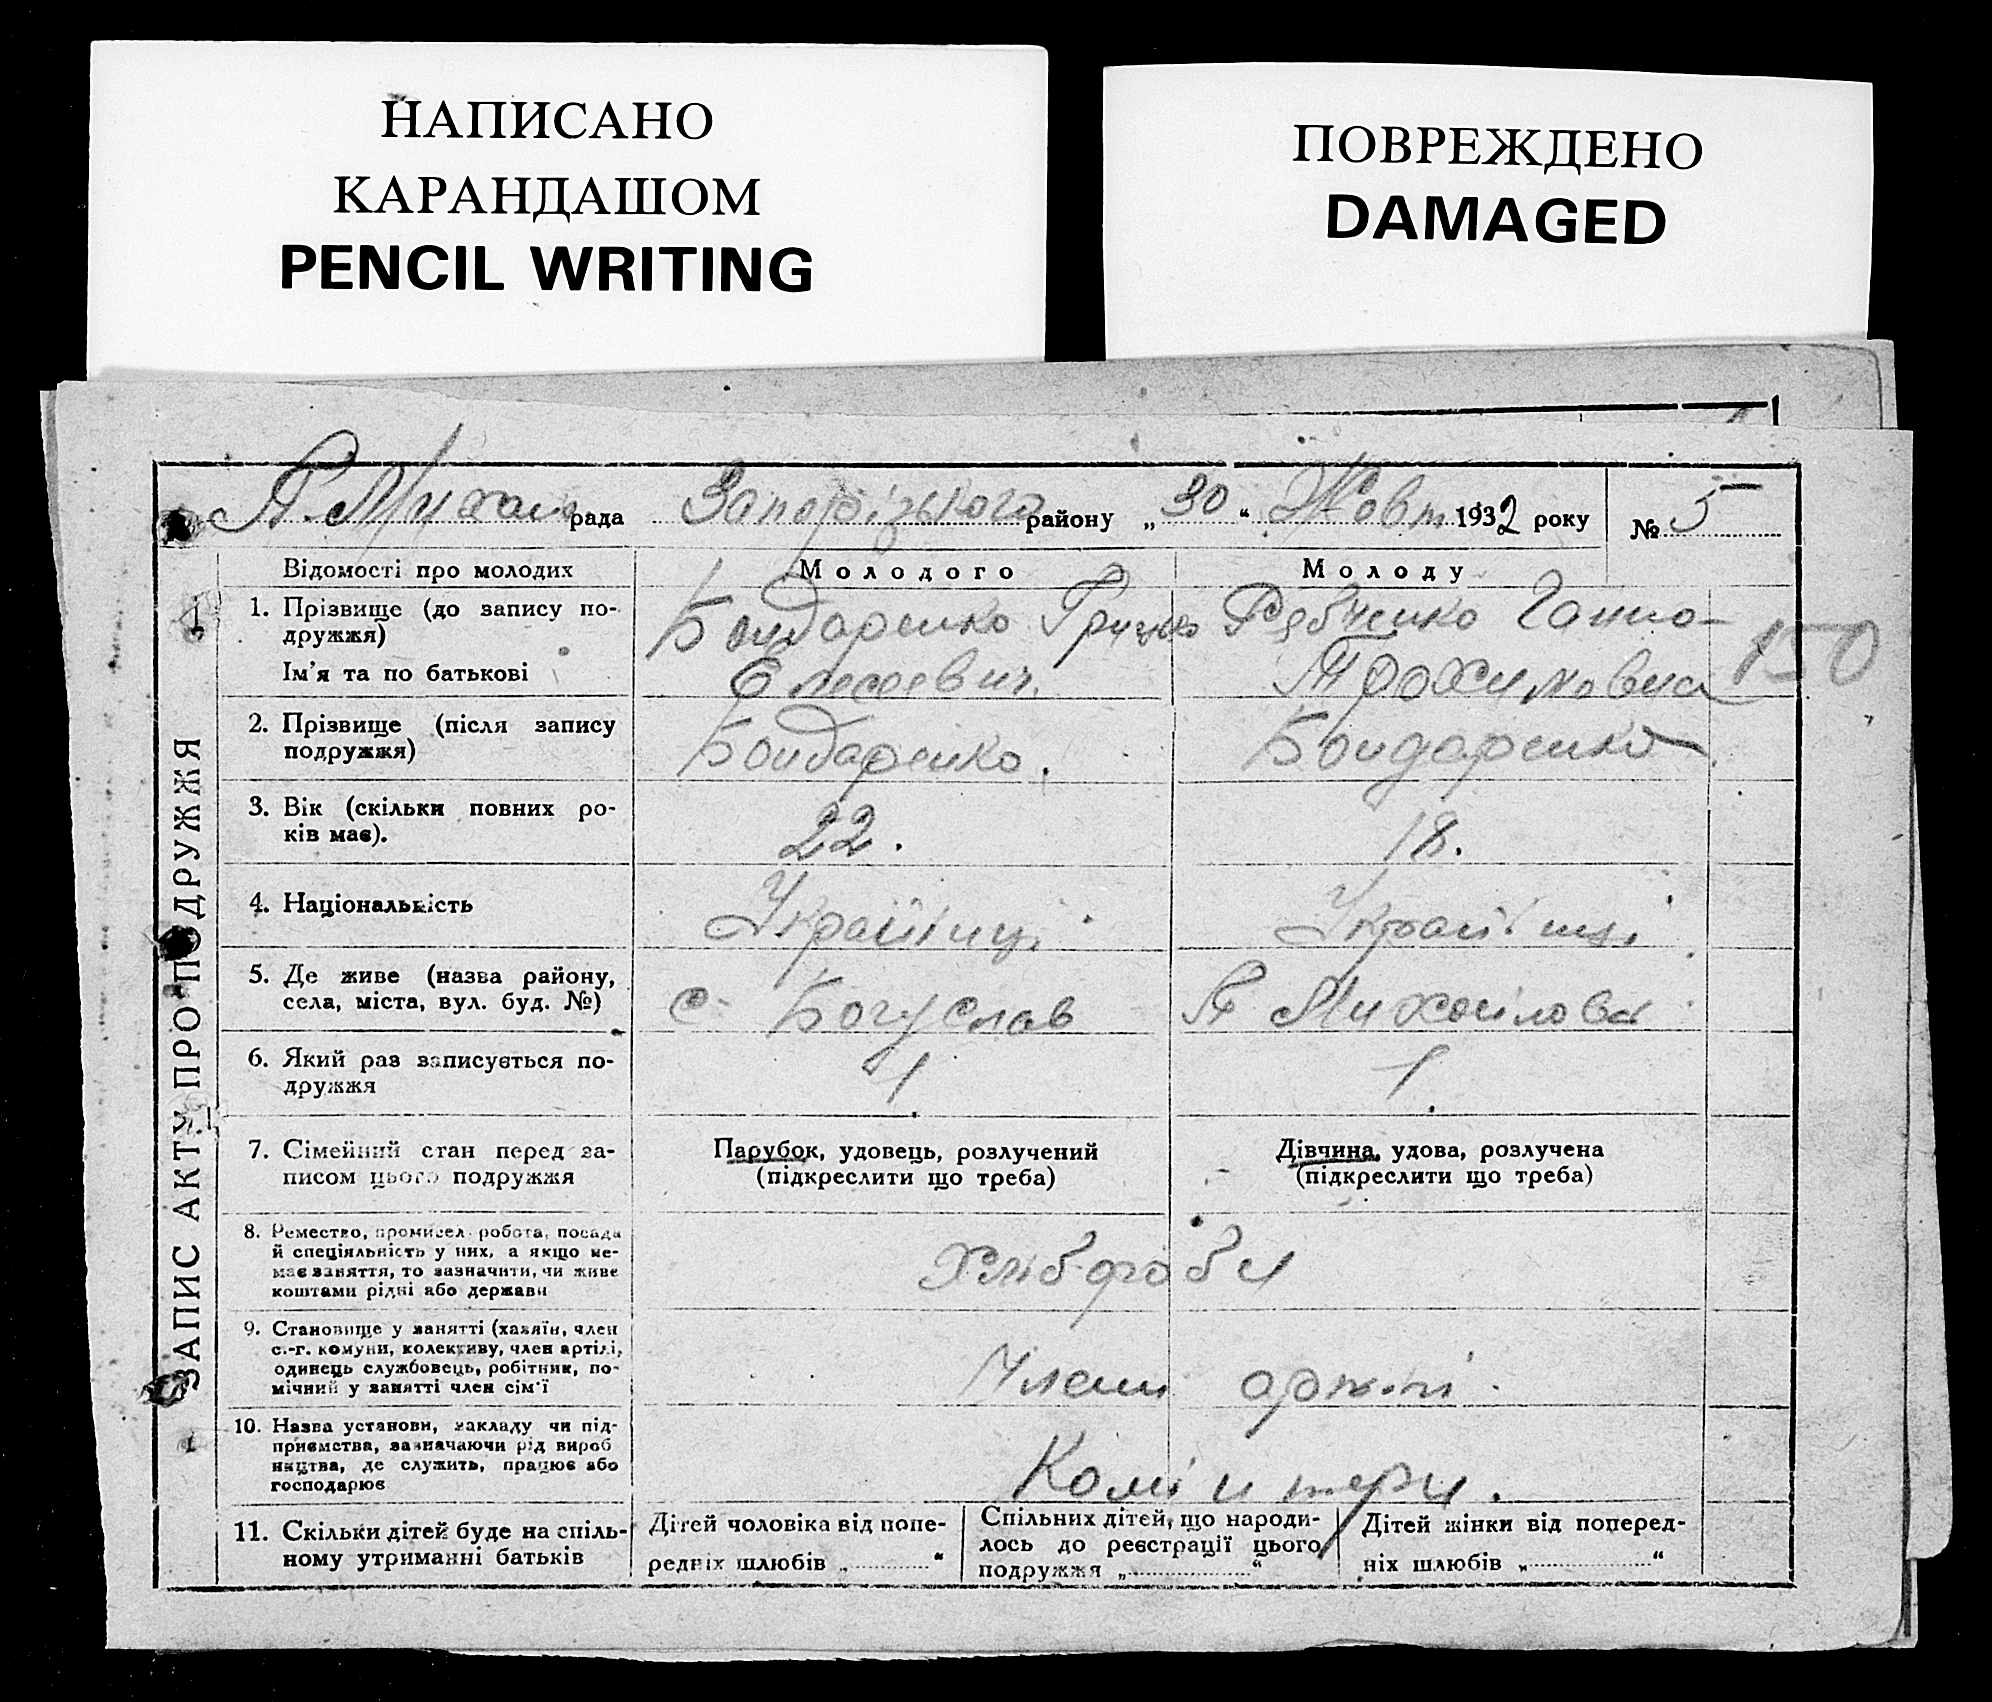 НАПИСАНО
КАРАНДАШОМ
PENCIL WRITING
ПОВРЕЖДЕНО
DAMAGED
П. Михайл рада Запорізького району „30“ Жовт 1932 року № 5
Відомості про молодих Молодого Молоду
1. Прізвище (до запису по-
дружжя)
Бондаренко Грицько Рябченко Ганна
Ім'я та по батькові
Елесеевич. Трохимовна
150
2. Прізвище (після запису
подружжя)
Бондаренко. Бондаренко
3. Вік (скільки повних ро-
ків має).
22. 18.
4. Національність
Українці Українці
5. Де живе (назва району,
села, міста, вул. буд. №)
с. Богуслав П Михайловка
6. Який раз записується по-
дружжя
1 1
7. Сімейний стан перед за-
писом цього подружжя
Парубок, удовець, розлучений
(підкреслити що треба)
Дівчина, удова, розлучена
(підкреслити що треба)
8. Ремество, промисел робота, посада
й спеціяльність у них, а якщо не-
має заняття, то зазначити, чи живе
коштами рідні або держави
Хлібороби
9. Становище у занятті (хазяїн, член
с.-г. комуни, колективу, член артілі,
одинець службовець, робітник, по-
мічний у занятті член сім'ї
Члени артілі.
10. Назва установи, закладу чи під-
приємства, зазначаючи рід вироб
ництва, де служить, працює або
господарює
Комінтерн.
11. Скільки дітей буде на спіль-
ному утриманні батьків
Дітей чоловіка від попе-
редніх шлюбів „ “
Спільних дітей, що народи-
лось до реєстрації цього
подружжя „ “
Дітей жінки від поперед-
ніх шлюбів „ “
ЗАПИС АКТУ ПРО ПОДРУЖЖЯ